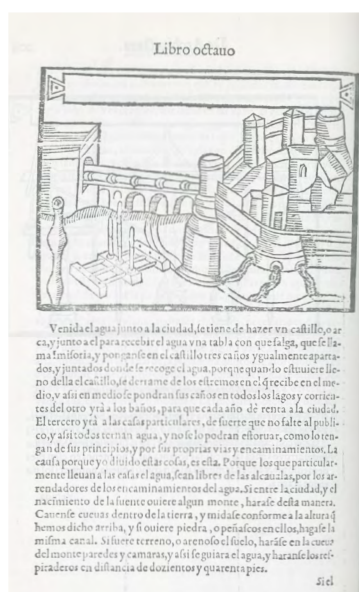 Libro octauo
Venida el agua junto a la ciudad, se tiene de hazer vn castillo, o ar
ca, y junto a el para recebir el agua vna tabla con que salga, que se lla-
ma Imisoria, y ponganse en el castillo tres caños ygualmente aparta-
dos, y juntados donde se recoge el agua, porque quando estuuiere lle-
no della el cañillo, se derrame de los estremos en el q̃ recibe en el me-
dio, y assi en medio se pondran sus caños en todos los lagos y corrien-
tes del otro yrà a los baños, para que cada año dè renta a la ciudad.
El tercero yrà a las casas particulares, de suerte que no falte al publi-
co, y assi todos ternan agua, y no se lo podran estoruar, como lo ten-
gan de sus principios, y por sus proprias vias y encaminamientos. La
causa porque yo diuido estas cosas, es esta. Porque los que particular-
mente lleuan a las casas el agua, sean libres de las alcaualas, por los ar-
rendadores de los encaminamientos del agua. Si entre la ciudad, y el
nacimiento de la fuente ouiere algun monte, harase desta manera.
Cauense cueuas dentro de la tierra, y midase conforme a la altura q̃
hemos dicho arriba, y si ouiere piedra, o peñascos en ellos, hagase la
misma canal. Si fuere terreno, o arenoso el suelo, haràse en la cueua
del monte paredes y camaras, y assi se guiara el agua, y haranse los res-
piraderos en distancia de dozientos y quarenta pies.
Si el